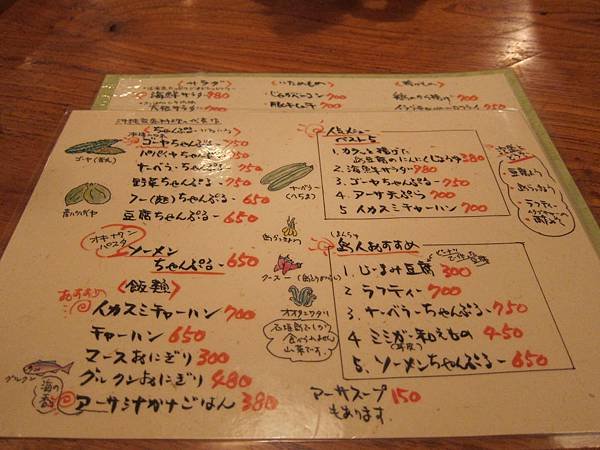 〈サラダ〉
海鮮サラダー 980
大根サラダー 700
〈いためもの〉
700
豚キムチ 700
700
950
〈ちゃんぷるー いろいろ〉
ゴーヤちゃんぷるー 750
パパイヤちゃんぷるー 750
ナーベラーちゃんぷるー 750
野菜ちゃんぷるー 650
フー(麩)ちゃんぷるー 650
豆腐ちゃんぷるー 650
オキナワン
パスタ
ソーメン
ちゃんぷるー 650
〈飯類〉
おすすめ
イカスミチャーハン 700
チャーハン 650
マースおにぎり 300
グルクンおにぎり 480
アーサ
ごはん 380
グルクン
海の
香り
ゴーヤ
青パパヤ
ナーベラー
(へちま)
島らっきょう
オオタニワタリ
石垣島でしか
食べられません
山菜です。
人気メニュー
ベスト5
1. カラッと揚げた
島豆腐のにんにくじょうゆ 380
2. 海鮮サラダー 980
3. ゴーヤちゃんぷるー 750
4. アーサ天ぷら 700
5. イカスミチャーハン 700
島人おすすめ
1. じーまみ豆腐 300
2 ラフティー 700
3. ナーベラーちゃんぷるー 750
4 ミミガー和えもの 450
5. ソーメンちゃんぷるー 650
アーサスープ 150
もあります
豆腐よう
島らっきょう
ラフティー